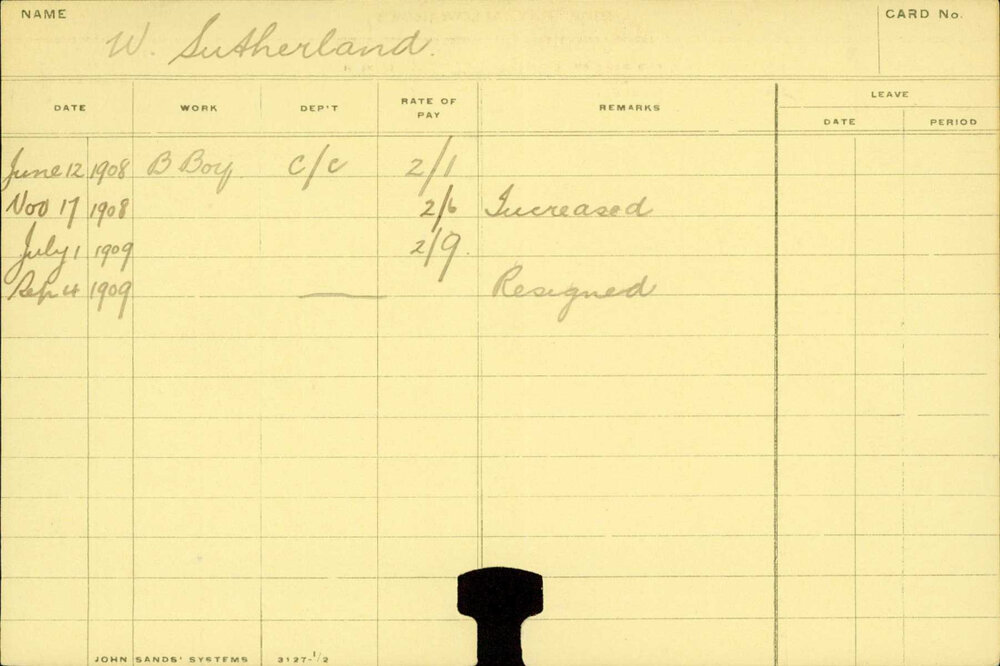 NAME W. Sutherland. CARD No.
DATE WORK DEP'T RATE OF PAY REMARKS LEAVE
DATE PERIOD
June 12 1908 B Boy. C/C 2/1
Nov 17 1908 2/6 Increased
July 1 1909 2/9.
Sep 4 1909 — Resigned
JOHN SANDS' SYSTEMS 3127-1/2